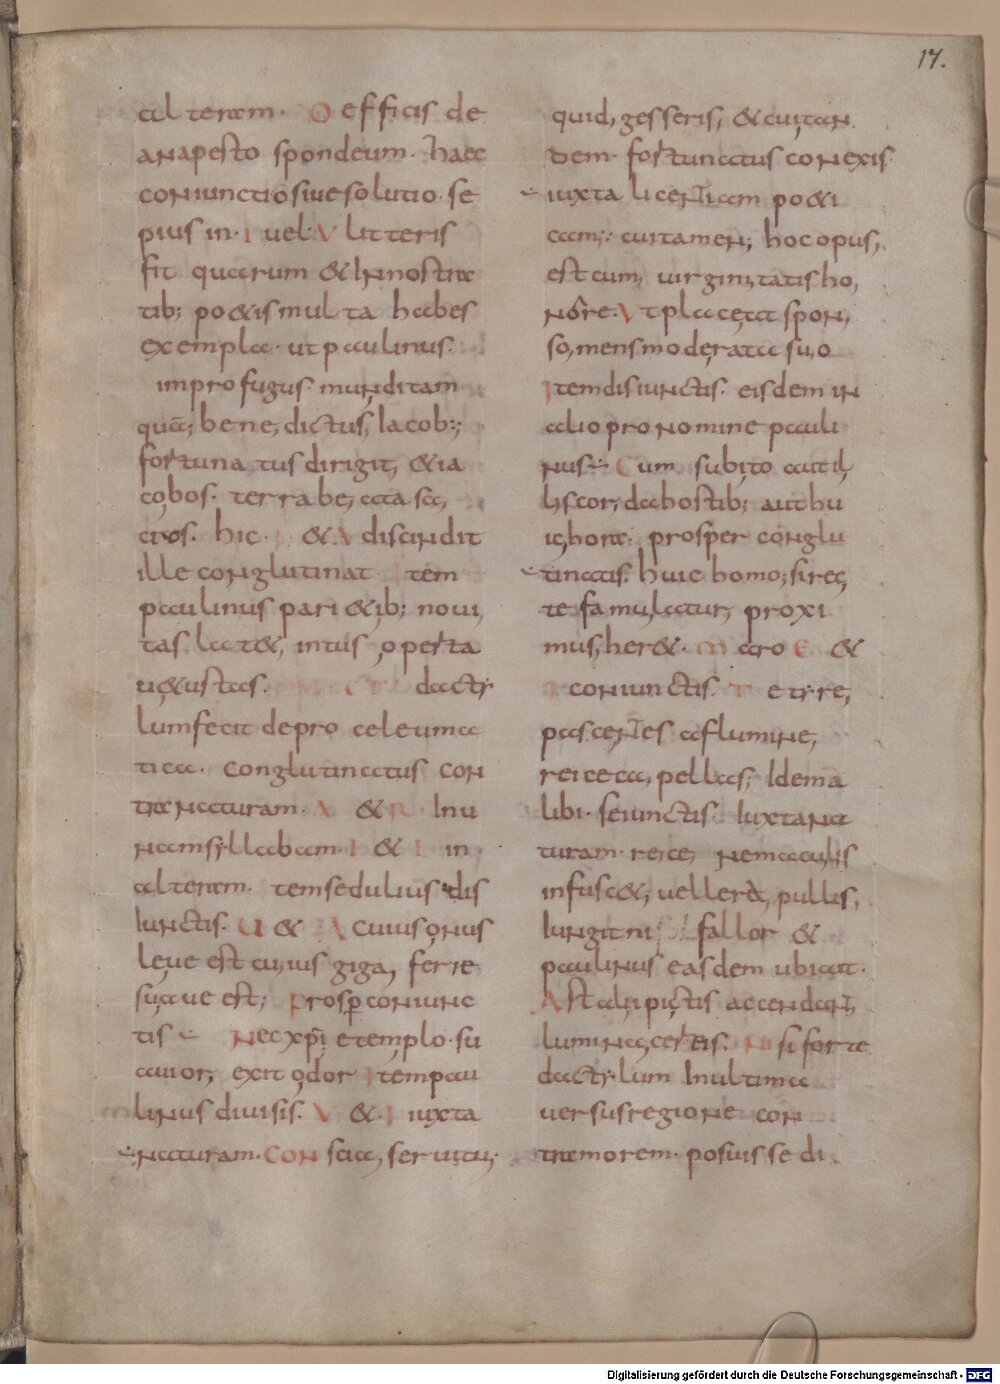 17.
alteram. O efficis de
anapesto spondeum. haec
coniunctio siue solutio. se
pius in. I uel. V litteris
fit quarum & in nostra
tib; poetis multa habes
exempla. ut paulinus.
improfugus. munditam
quā; bene, dictus, Iacob;
fortuna tus dirigit, & ia
cobos. terra be, ata sa,
cros. hic. & A discindit
ille conglutinat Item
paulinus pari & ib; noui,
tas lat&, intus, operta
uetustas. dacty
lum fecit de pro celeuma
tica. Conglutinatus con
tra naturam. A & R Inu
nam syllabam. I & I in
alteram. temsedulius dis
Iunctis. U & A cuius onus
leue est cuius giga, ferre
suaue est; prosp coniunc
tis Nec xp̄i e templo. su
auor, exit odor Item pau
linus diuisis. V & I iuxta
naturam. Con scia, seruitu,
quid, gesseris, & cuitan
dem. fortunatus conexis
iuxta licentiam poeti
cam; cuitamen, hoc opus,
est cum, uirginitatis ho,
nore. Ut placeat spon,
so, mens moderata suo
Item disiunctis. eisdem in
alio pro nomine pauli
nus Cum subito autil,
liscor, da hostib; aut hu
ic, hora. prosper conglu
tinatis. huic homo; si rec
te famulatur, proxi
mus, her&. M acro E &
coniunctis. T etyre,
pascentes a flumine,
reice a, pellas; Idem a
libi. seiunctis. Iuxta na
turam. reice, ne maculis
infuscet, uellera, pullis,
Iungit ni fallor &
paulinus easdem ubi ait.
Ast alii pictis accendant,
lumina, certeis. Nisi forte
dactylum In ultima
uersus regione con
tra morem. posuisse di
Digitalisierung gefördert durch die Deutsche Forschungsgemeinschaft - DFG